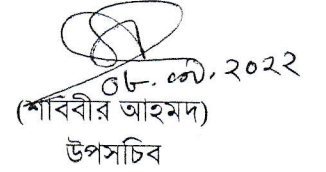 ০৮. ০৩. ২০২২
(শাব্বীর আহমদ)
উপসচিব